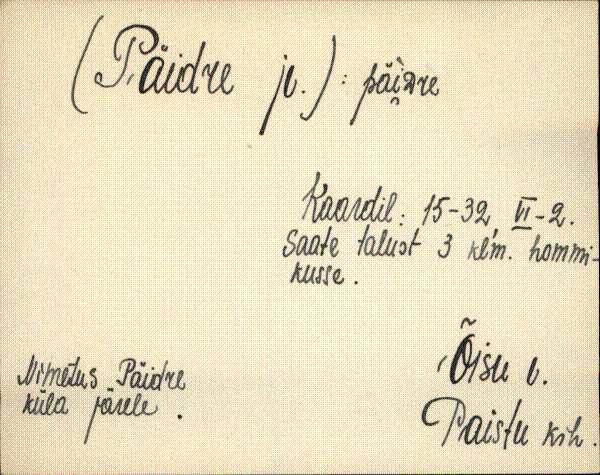 (Päidre jv.) : päi̯dre
Kaardil: 15-32, VI-2.
Saate talust 3 klm. hommi-
kusse.
Nimetus Päidre
küla järele.
Õisu v.
Paistu khk.